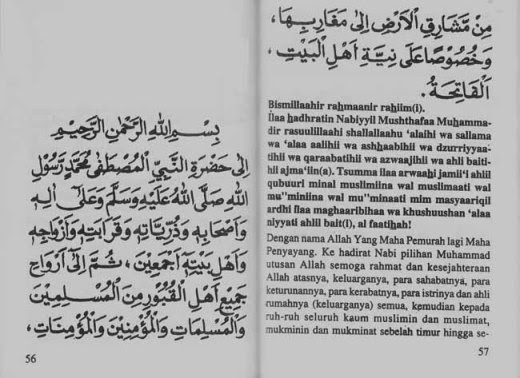 بِسْمِ اللهِ الرَّحْمٰنِ الرَّحِيْمِ
اِلٰى حَضْرَةِ النَّبِيِّ الْمُصْطَفٰى مُحَمَّدٍ رَسُوْلِ
اللهِ صَلَّى اللهُ عَلَيْهِ وَسَلَّمَ وَعَلٰى اٰلِهِ
وَاَصْحَابِهِ وَذُرِّيَّاتِهِ وَقَرَابَتِهِ وَاَزْوَاجِهِ
وَاَهْلِ بَيْتِهِ اَجْمَعِيْنَ، ثُمَّ اِلٰى اَرْوَاحِ
جَمِيْعِ اَهْلِ الْقُبُوْرِ مِنَ الْمُسْلِمِيْنَ
وَالْمُسْلِمَاتِ وَالْمُؤْمِنِيْنَ وَالْمُؤْمِنَاتِ،
56
مِنْ مَشَارِقِ الْاَرْضِ اِلٰى مَغَارِبِهَا،
وَخُصُوْصًا عَلٰى نِيَّةِ اَهْلِ الْبَيْتِ،
اَلْفَاتِحَةُ.
Bismillaahir rahmaanir rahiim(i).
Ilaa hadhratin Nabiyyil Mushthafaa Muhamma-
dir rasuulillaahi shallallaahu 'alaihi wa sallama
wa 'alaa aalihii wa ashhaabihii wa dzurriyyaa-
tihii wa qaraabatihii wa azwaajihii wa ahli baiti-
hii ajma'iin(a). Tsumma ilaa arwaahi jamii'i ahlil
qubuuri minal muslimiina wal muslimaati wal
mu"miniina wal mu"minaati mim masyaariqil
ardhi ilaa maghaaribihaa wa khushuushan 'alaa
niyyati ahlil bait(i), al faatihah!
Dengan nama Allah Yang Maha Pemurah lagi Maha
Penyayang. Ke hadirat Nabi pilihan Muhammad
utusan Allah semoga rahmat dan kesejahteraan
Allah atasnya, keluarganya, para sahabatnya, para
keturunannya, para kerabatnya, para istrinya dan ahli
rumahnya (keluarganya) semua, kemudian kepada
ruh-ruh seluruh kaum muslimin dan muslimat,
mukminin dan mukminat sebelah timur hingga se-
57